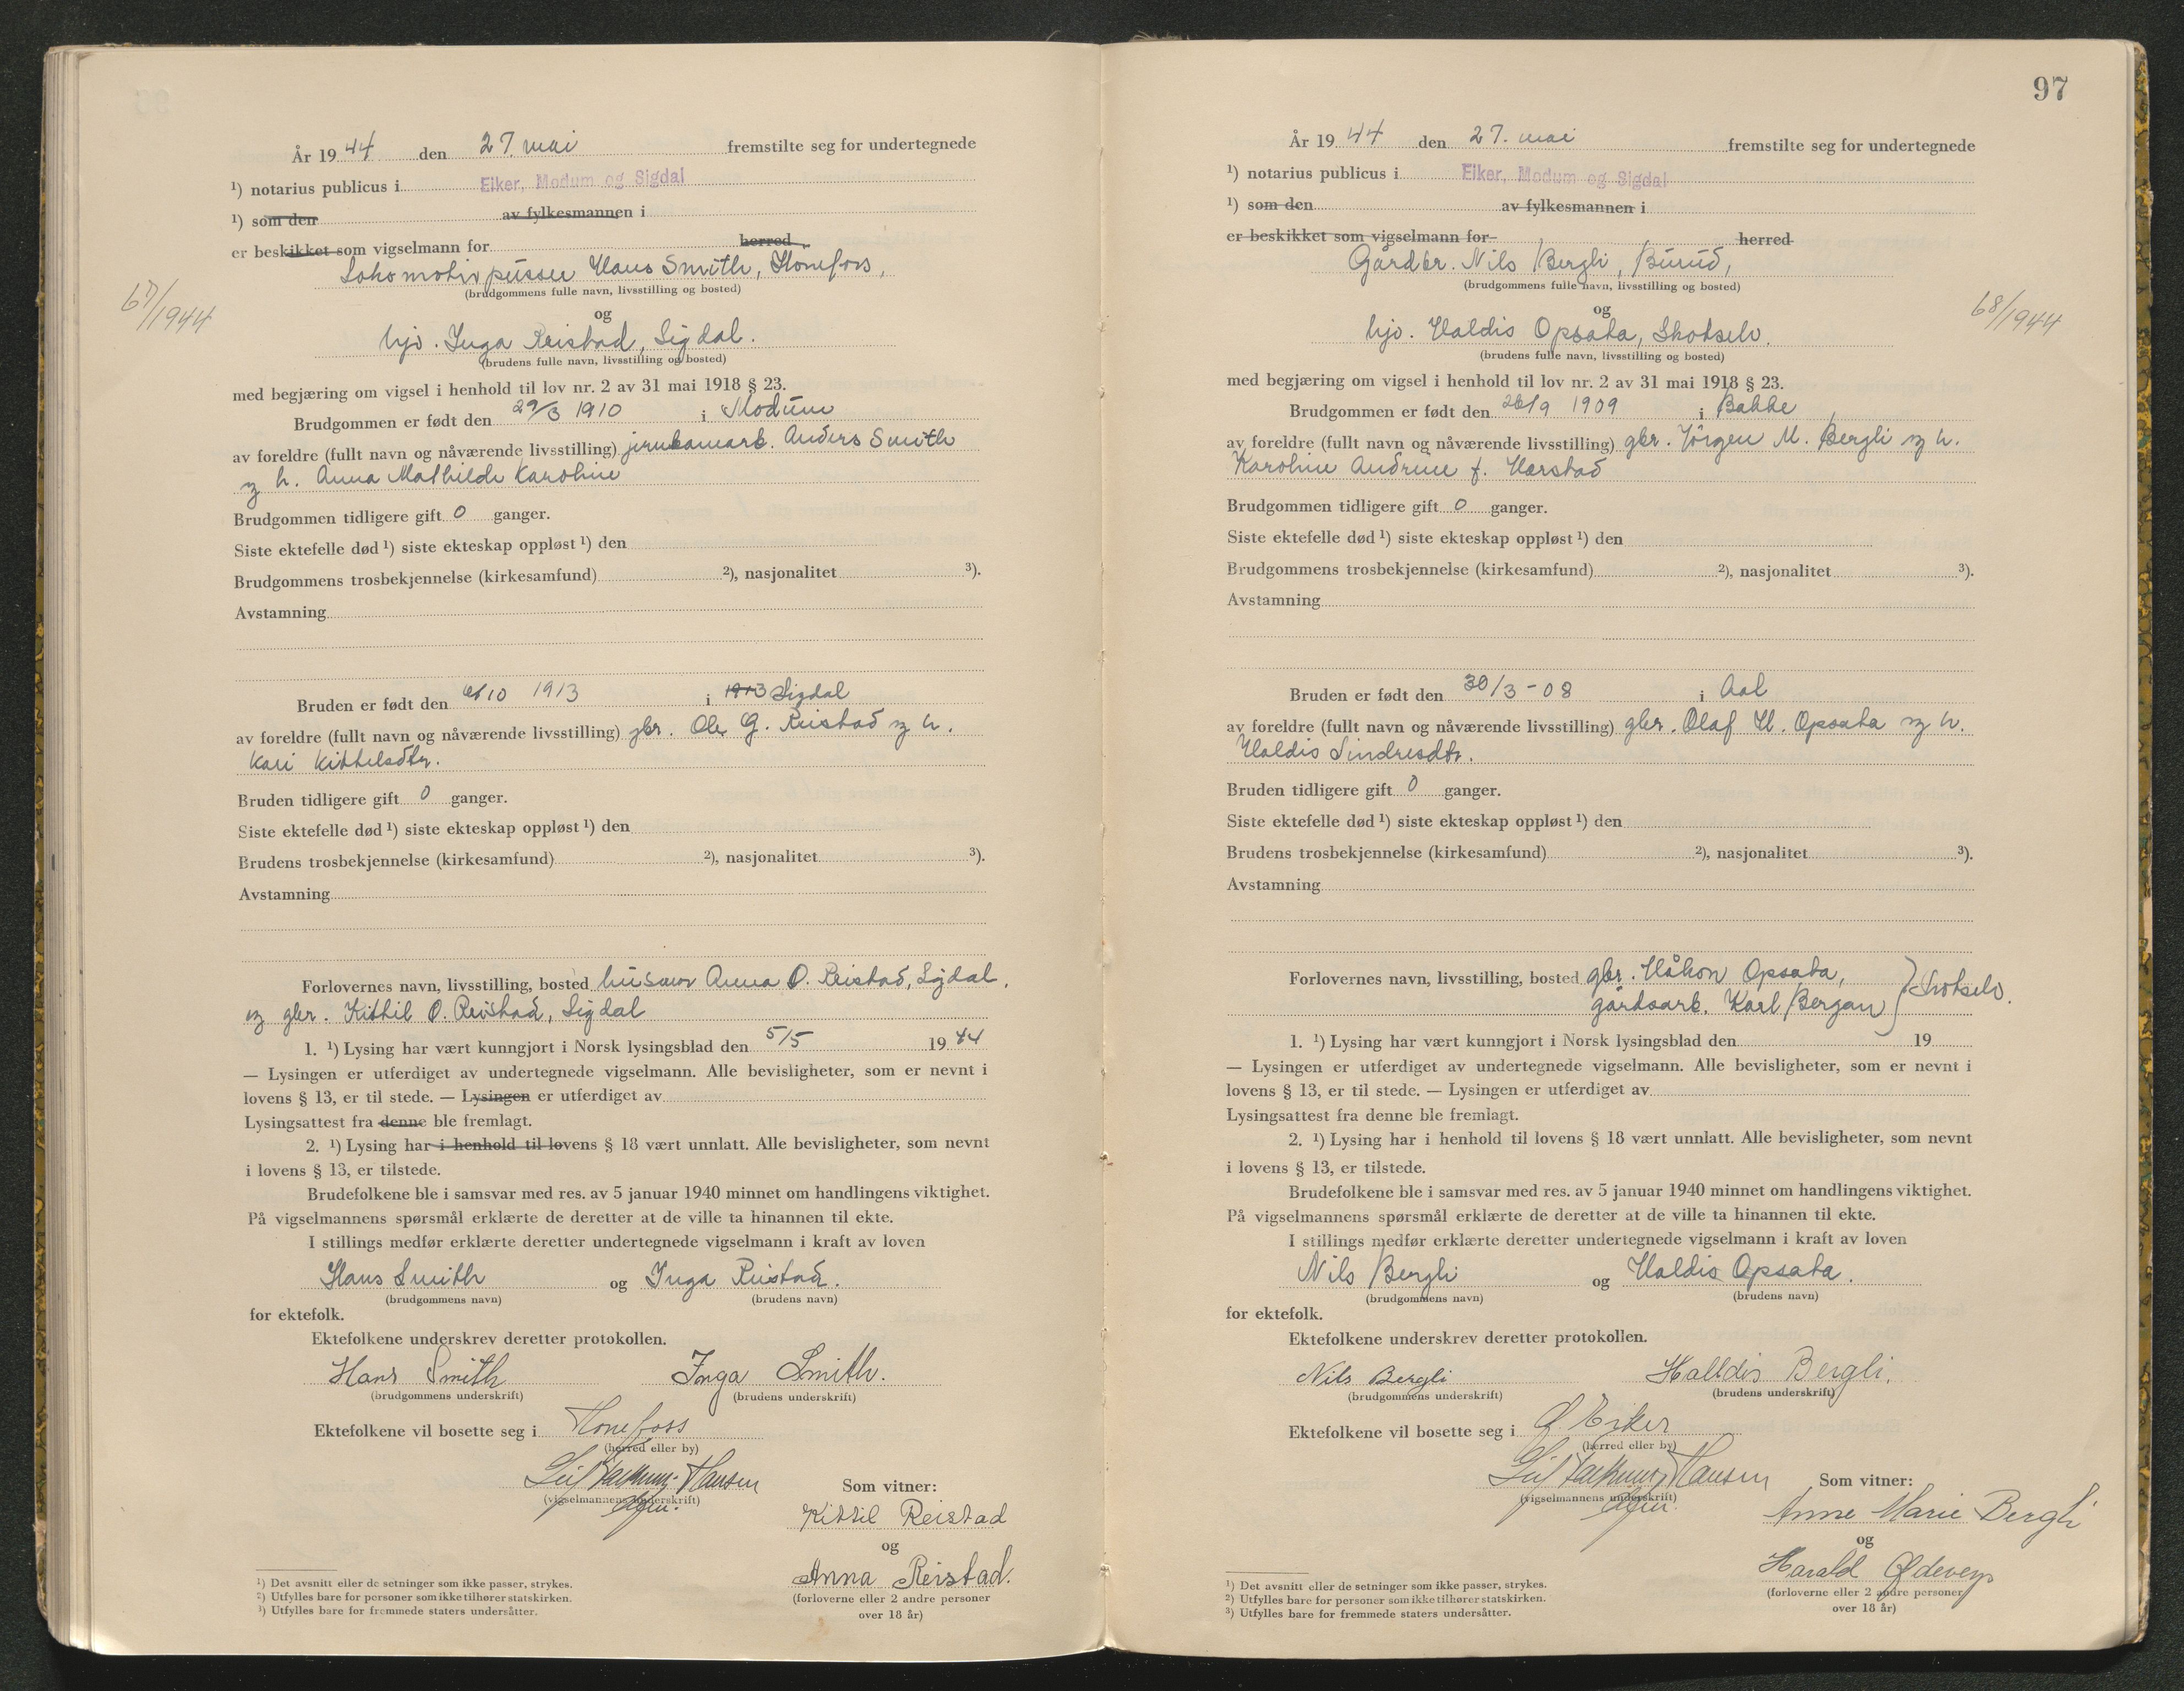 År 19 44 den 27. mai fremstilte seg for undertegnede
¹) notarius publicus i Eiker, Modum og Sigdal
¹) som den av fylkesmannen i
er beskikket som vigselmann for herred
Lokomotivpusser Hans Smith, Hønefoss,
(brudgommens fulle navn, livsstilling og bosted)
67/1944
og
hjv. Inga Reistad, Sigdal.
(brudens fulle navn, livsstilling og bosted)
med begjæring om vigsel i henhold til lov nr. 2 av 31 mai 1918 § 23.
Brudgommen er født den 29/3 1910 i Modum
av foreldre (fullt navn og nåværende livsstilling) jernbanearb. Anders Smith
og h. Anna Mathilde Karoline
Brudgommen tidligere gift 0 ganger.
Siste ektefelle død ¹) siste ekteskap oppløst ¹) den
Brudgommens trosbekjennelse (kirkesamfund) ²), nasjonalitet ³).
Avstamning
Bruden er født den 10 1913 i 1913 Sigdal
av foreldre (fullt navn og nåværende livsstilling) gbr. Ole G. Reistad og h.
Kari Kittelsdtr.
Bruden tidligere gift 0 ganger.
Siste ektefelle død ¹) siste ekteskap oppløst ¹) den
Brudens trosbekjennelse (kirkesamfund) ²), nasjonalitet ³).
Avstamning
Forlovernes navn, livsstilling, bosted Anna O. Reistad, Sigdal,
og gbr. Kittil O. Reistad, Sigdal
1. ¹) Lysing har vært kunngjort i Norsk lysingsblad den 5/5 19 44
— Lysingen er utferdiget av undertegnede vigselmann. Alle bevisligheter, som er nevnt i
lovens § 13, er til stede. — Lysingen er utferdiget av
Lysingsattest fra denne ble fremlagt.
2. ¹) Lysing har i henhold til lovens § 18 vært unnlatt. Alle bevisligheter, som nevnt
i lovens § 13, er tilstede.
Brudefolkene ble i samsvar med res. av 5 januar 1940 minnet om handlingens viktighet.
På vigselmannens spørsmål erklærte de deretter at de ville ta hinannen til ekte.
I stillings medfør erklærte deretter undertegnede vigselmann i kraft av loven
Hans Smith og Inga Reistad.
(brudgommens navn) (brudens navn)
for ektefolk.
Ektefolkene underskrev deretter protokollen.
Hans Smith Inga Smith.
(brudgommens underskrift) (brudens underskrift)
Ektefolkene vil bosette seg i Hønefoss
(herred eller by)
Leif Hansen
(vigselmannens underskrift)
Som vitner:
Kittil Reistad
og
Anna Reistad.
(forloverne eller 2 andre personer
over 18 år)
¹) Det avsnitt eller de setninger som ikke passer, strykes.
²) Utfylles bare for personer som ikke tilhører statskirken.
³) Utfylles bare for fremmede staters undersåtter.
97
År 19 44 den 27. mai fremstilte seg for undertegnede
¹) notarius publicus i Eiker, Modum og Sigdal
¹) som den av fylkesmannen i
er beskikket som vigselmann for herred
Gårdbr. Nils Bergli, Burud,
(brudgommens fulle navn, livsstilling og bosted)
68/1944
og
hjv. Haldis Opsata, Skotselv.
(brudens fulle navn, livsstilling og bosted)
med begjæring om vigsel i henhold til lov nr. 2 av 31 mai 1918 § 23.
Brudgommen er født den 26/9 1909 i Bakke
av foreldre (fullt navn og nåværende livsstilling) gbr. Jørgen M. Bergli og h.
Karoline Andrine f. Harstad
Brudgommen tidligere gift 0 ganger.
Siste ektefelle død ¹) siste ekteskap oppløst ¹) den
Brudgommens trosbekjennelse (kirkesamfund) ²), nasjonalitet ³).
Avstamning
Bruden er født den 30/3 - 08 i Aal
av foreldre (fullt navn og nåværende livsstilling) gbr. Olaf H. Opsata og h.
Haldis Sindresdtr.
Bruden tidligere gift 0 ganger.
Siste ektefelle død ¹) siste ekteskap oppløst ¹) den
Brudens trosbekjennelse (kirkesamfund) ²), nasjonalitet ³).
Avstamning
Forlovernes navn, livsstilling, bosted gbr. Håkon Opsata,
gårdsarb. Karl Bergan } Skotselv.
1. ¹) Lysing har vært kunngjort i Norsk lysingsblad den 19
— Lysingen er utferdiget av undertegnede vigselmann. Alle bevisligheter, som er nevnt i
lovens § 13, er til stede. — Lysingen er utferdiget av
Lysingsattest fra denne ble fremlagt.
2. ¹) Lysing har i henhold til lovens § 18 vært unnlatt. Alle bevisligheter, som nevnt
i lovens § 13, er tilstede.
Brudefolkene ble i samsvar med res. av 5 januar 1940 minnet om handlingens viktighet.
På vigselmannens spørsmål erklærte de deretter at de ville ta hinannen til ekte.
I stillings medfør erklærte deretter undertegnede vigselmann i kraft av loven
Nils Bergli og Haldis Opsata.
(brudgommens navn) (brudens navn)
for ektefolk.
Ektefolkene underskrev deretter protokollen.
Nils Bergli Halldis Bergli.
(brudgommens underskrift) (brudens underskrift)
Ektefolkene vil bosette seg i Ø. Eiker
(herred eller by)
Leif Hansen
(vigselmannens underskrift)
Som vitner:
Anne Marie Bergli
og
Harald
(forloverne eller 2 andre personer
over 18 år)
¹) Det avsnitt eller de setninger som ikke passer, strykes.
²) Utfylles bare for personer som ikke tilhører statskirken.
³) Utfylles bare for fremmede staters undersåtter.